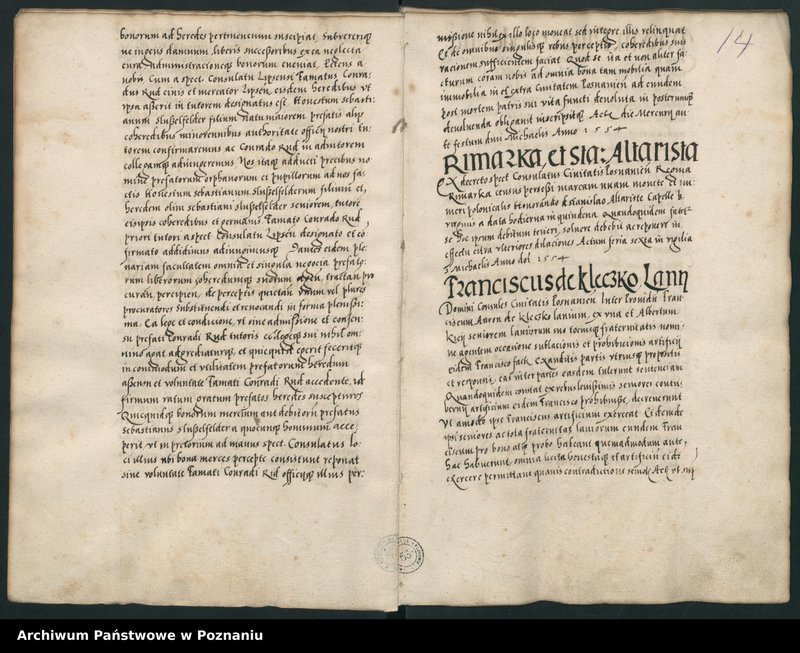 bonorum ad heredes pertinentium suscipiat, subvererique
ne ingens damnum liberis successoribus ex ea neglecta
cura administracioneque bonorum eveniat. Petens a
nobis Cum a spect. Consulatu Lipsensi Famatus Conra-
dus Rud civis et mercator Lipsen. eisdem heredibus ut
ipsa asserit in tutorem designatus est. Honestum sebasti-
anum slusselfelder filium natu maiorem prefatis aliis
coheredibus minorennibus authoritate officii nostri tu-
torem confirmaremus ac Conrado Rud in adiutorem
collegamque adiungeremus. Nos itaque adducti precibus no-
mine prefatorum orphanorum et pupillorum ad nos fa-
ctis Honestum sebastianum slusselfelderum filium et,
heredem olim sebastiani slusselfelder seniorem, tutore
eisipsis coheredibus et germanis Famato Conrado Rud,
priori tutori a spect. Consulatu Lipsen. designato et co
firmato addidimus adiunximusque Dantes eidem ple-
nariam facultatem omnia et singula negocia prefato-
rum liberorum coheredumque suorum tractan. pro
curan. percipien. de perceptis quietan. unum vel plures
procuratores substituendi et revocandi in forma plenissi-
ma. Ca lege et condicione, ut sine admissione et consen-
su prefati Conradi Rud tutoris et college sui nihil om-
nino agat aggrediaturque, et quicquid egerit feceritque
in commodum et utilitatem prefatorum heredum
assensu et voluntate Famati Conradi Rud accedente, id
firmum ratum gratum prefatos heredes suscepturos
Quicquidque bonorum mercium aut debitorum prefatus
sebastianus slusselfelder a quocunque hominum acce
perit, ut in pretorium ad manus spect. Consulatus lo-
ci illius ubi bona merces percepte consistunt reponat
sine voluntate Famati Conradi Rud officiique illius per-
missione nihil ex illo loco moveat sed integre illic relinquat
Et de omnibus singulisque rebus perceptis, coheredibus suis
racionem sufficientem faciat Quod se ita et non aliter fa-
cturum coram nobis ad omnia bona tam mobilia quam
immobilia in et extra Civitatem Posnanien. ad eundem
post mortem patris sui vita functi devoluta in posterumque
devolvenda obligavit inscripsitque Actum die Mercurii an-
te festum divi Michaelis Anno 1554
14
Rimarka, et Sta: Altarista
Ex decreto spect. Consulatus Civitatis Posnanien. Regina
Rimarka census perpetui marcam unam monete et nu-
meri polonicalis Honorando d. Stanislao Altariste Capelle B.
virginis a data hodierna in quindena Quandoquidem fate-
se hoc ipsum debitum teneri, solvere debebit ac reponere in
effectu citra ulteriores dilaciones Actum feria sexta in vigilia
S. Michaelis Anno dni 1554
Franciscus de Kleczko Lanii
Domini Consules Civitatis Posnanien. Inter Providum Fran-
ciscum Auron de Kleczko lanium, ex una et Albertum
Kien seniorem laniorum suo tociusque fraternitatis nomi
ne agentem occasione sublacionis et prohibicionis artificii
eidem Francisco fact. Exauditis partis utriusque propositis
et responsis, eas inter partes easdem tulerunt sentenciam
Quandoquidem constat ex rebus levissimis seniores contu-
bernii artificium eidem Francisco prohibuisse, decreverunt
Ut amodo ipse Franciscus artificium exerceat Et deinde
ipsi seniores ac tota fraternitas laniorum eundem Fran
ciscum pro bono atque probo habeant quemadmodum ante,
hac habuerunt, omnia licita honestaque et artificium eide
exercere permittant quavis contradictione semota Actum ut sup
Archiwum Państwowe w Poznaniu